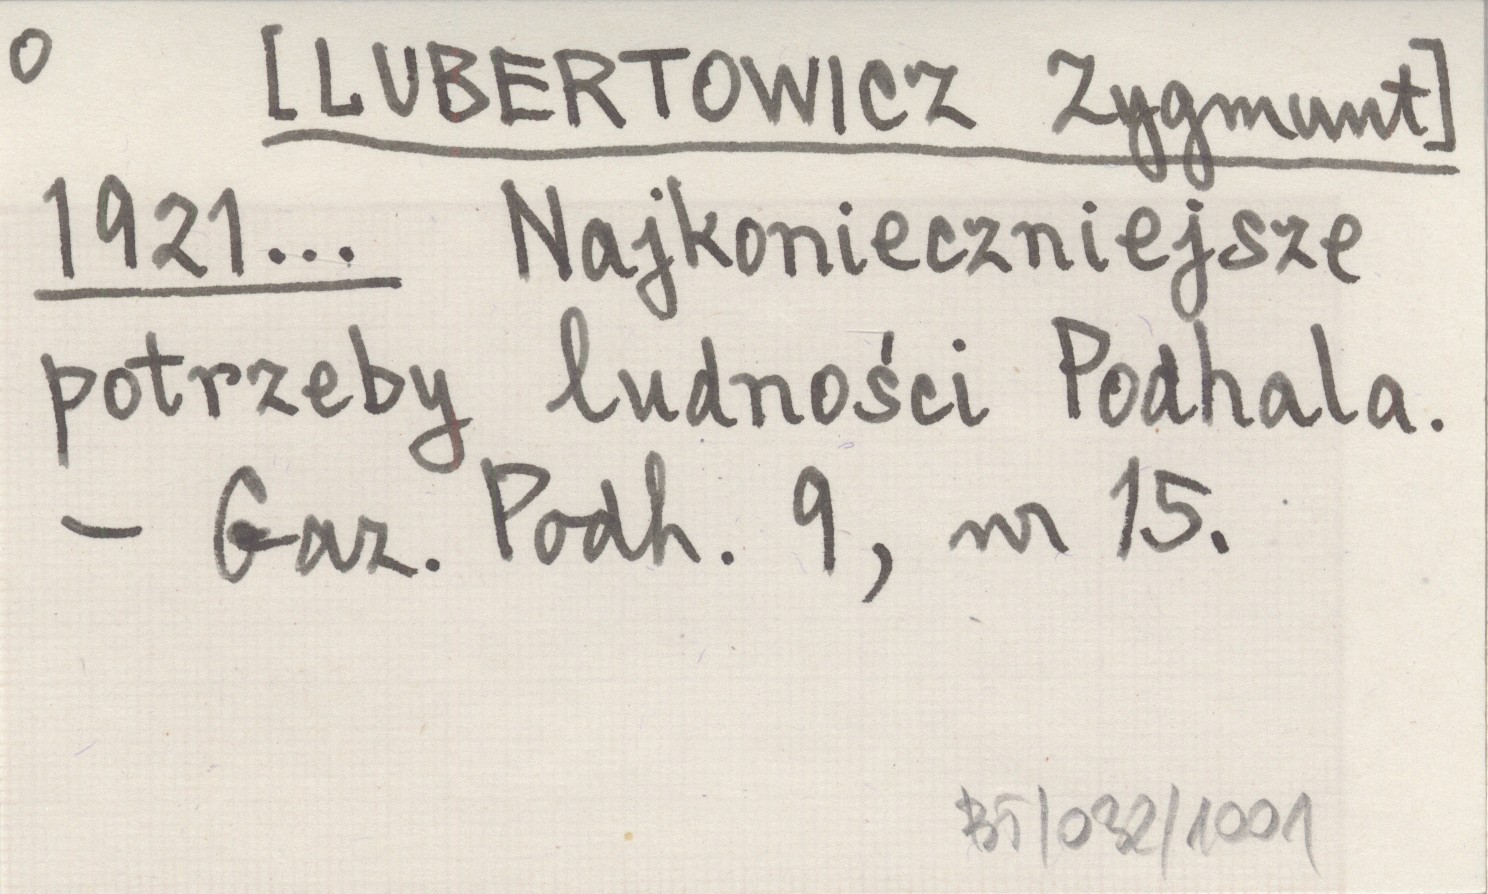 o [LUBERTOWICZ Zygmunt]
1921... Najkonieczniejsze
potrzeby ludności Podhala.
– Gaz. Podh. 9, nr 15.
BT/032/1001